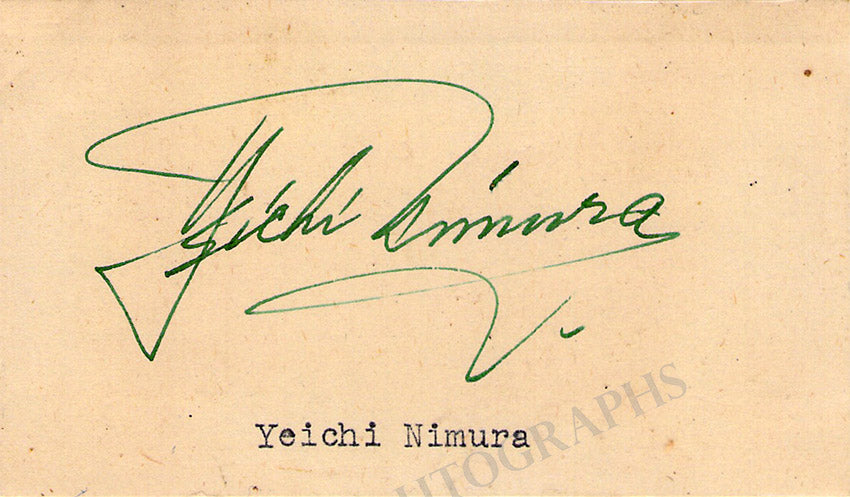 Yeichi Nimura
Yeichi Nimura
AUTOGRAPHS